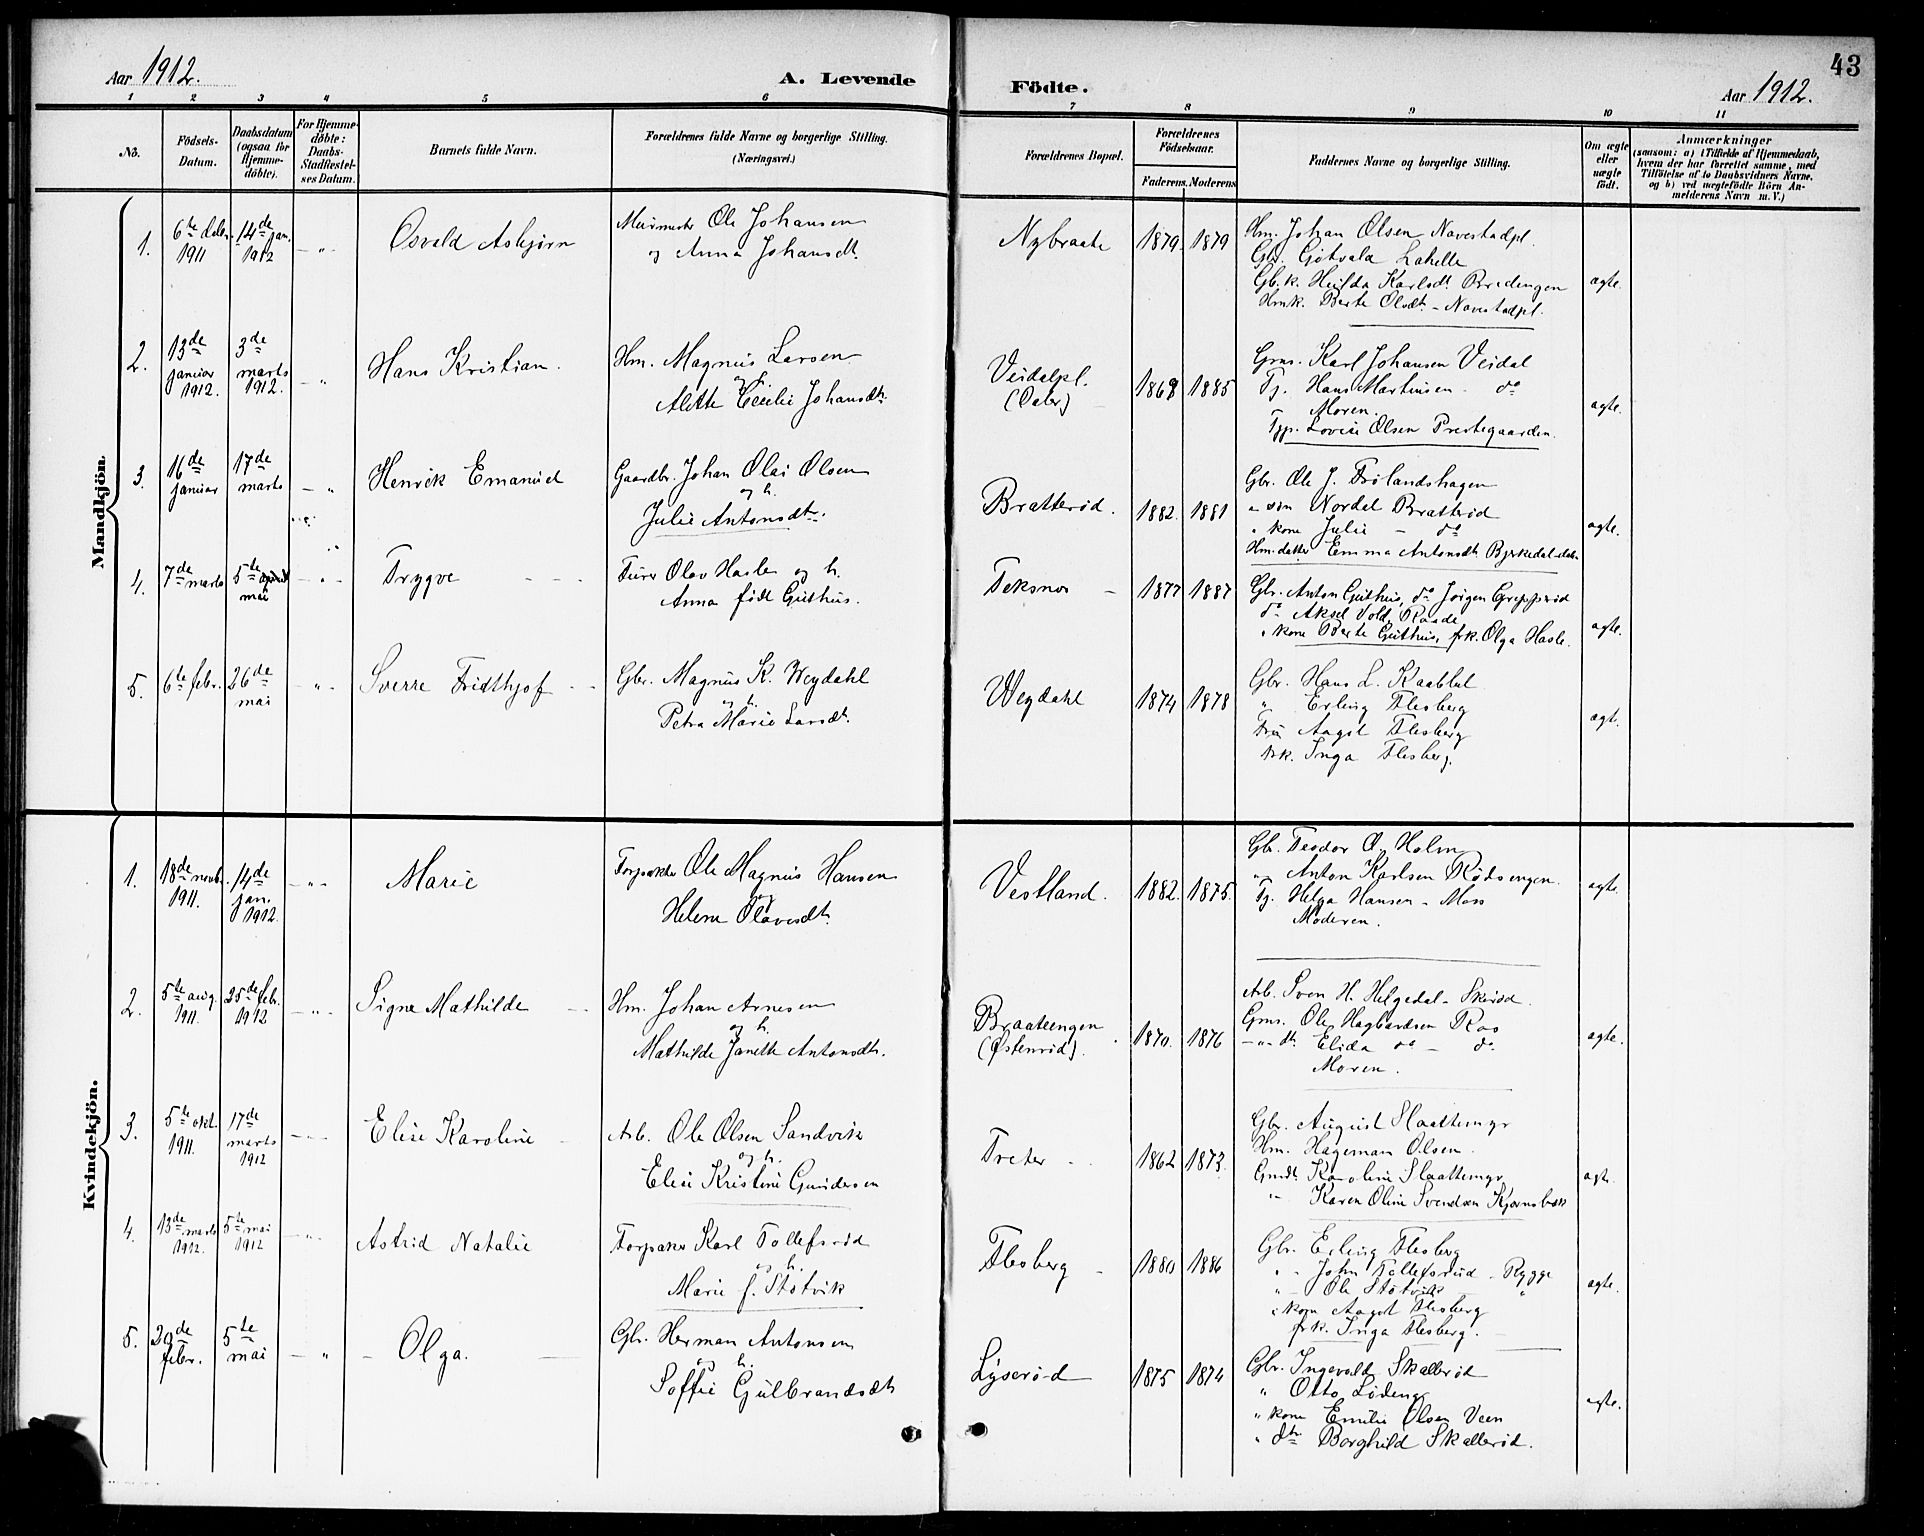 43
Aar 1912.
A. Levende
Födte.
Aar 1912.
1 2 3 4 5 6 7 8 9 10 11
No.
Födsels-
Datum.
Daabsdatum
(ogsaa for
Hjemme-
döbte).
For Hjemme-
döbte:
Daabs-
Stadfæstel-
ses Datum.
Barnets fulde Navn.
Forældrenes fulde Navne og borgerlige Stilling.
(Næringsvei.)
Forældrenes Bopæl.
Forældrenes
Födselsaar.
Faderens. Moderens
Faddernes Navne og borgerlige Stilling.
Om ægte
eller
uægte
födt.
Anmærkninger
(saasom: a) i Tilfælde af Hjemmedaab,
hvem der har forrettet samme, med
Tilföielse af to Daabsvidners Navne,
og b) ved uægtefödte Börn An-
melderens Navn m. V.)
Mandkjön.
1.
6te debr.
1911
14de jan.
1912
Osvald Asbjørn
Murmester Ole Johansen
og Anna Johansdt.
Nybraate
1879. 1879
Hm. Johan Olsen Navestadpl.
Gbr. Gotvala Lahelle
Gb.k. Hilda Karlsdt. Bredengen
Hmk. Berte Olsdt. - Navestadpl.
ægte.
2.
13de
januar
1912.
3de
marts
1912.
Hans Kristian.
Hm. Magnus Larsen
og h.
Alette Cecilie Johansdt.
Veidalpl.
(Daler)
1868 1885
Grms. Karl Johansen Veidal
Tj. Hans Martinsen - do
Moren.
Tjp. Lovise Olsen Prestegaarden.
ægte.
3.
16de
januar
17de
marts
Henrik Emanuel
Gaardbr. Johan Olai Olsen
og h.
Julie Antonsdt.
Bratterød.
1882. 1881
Gbr. Ole J. Frølandshagen
" søn Nordal Bratterød
" kone Julie - do
Hm. datter Emma Antonsdt. Bjerkedal
ægte.
4.
7de marts
5te april
mai
Trygve
Furer Olav Hasle og h.
Anna født Guthus.
Teksnes
1877 1887
Gbr. Anton Guthus, do Jørgen Gripperød
do Aksel Vold, Raade
" kone Berte Guthus, frk. Olga Hasle.
ægte.
5.
6te febr.
26de
mai
Sverre Fridthjof
Gbr. Magnus K. Weydahl
og h.
Petra Marie Larsdt.
Weydahl
1874 1878
Gbr. Hans L. Kaabbel
" Erling Flesberg
Fru Aagot Flesberg
frk. Inga Flesberg.
ægt.
Kvindekjön.
1.
18de novb.
1911.
14de
jan.
1912.
Marie
Forpakter Ole Magnus Hansen
og
Helene Olavesdt.
Vestland.
1882. 1875.
Gbr. Teodor A. Holm
" Anton Karlsen Rødsengen.
Tj. Helga Hansen - Moss
Moderen.
ægte.
2.
5te aug.
1911.
25de febr.
1912
Signe Mathilde
Hm. Johan Arnesen
og h.
Mathilde Janette Antonsdt.
Braateengen
(Østenrød).
1870. 1876
Arb. Sven H. Helgedal - Skirød.
Gms. Ole Hagbardsen Ros
" dt. Elida do - do
Moren.
ægte.
3.
5te okt.
1911.
17de
marts
1912
Elise Karoline
Arb. Ole Olsen Sandvik
og h.
Elise Kristine Gundersen
Treter
1862 1873.
Gbr. August Slaattemyr
Hm. Hageman Olsen.
Gmdt. Karoline Slaattemyr
" Karen Oline Svendsen Kjernsbæk
ægt.
4.
13de marts
1912.
5te mai
1912
Astrid Natalie
Forpakter Karl Tollefsrød
og h.
Marie f. Støtvik
Flesberg
1880 1886
Gbr. Erling Flesberg
" John Tollefsrud - Rygge
" Ole Støtvik "
" kone Aagot Flesberg
frk. Inga Flesberg.
ægte.
5.
29de
febr.
5te
mai
Olga.
Gbr. Herman Antonsen
og h.
Soffie Gulbrandsdt.
Lyserød
1875 1874
Gbr. Ingevald Skallerød
" Otto Lødeng
" kone Emilie Olsen Veen
" dtr Borghild Skallerød.
ægte.